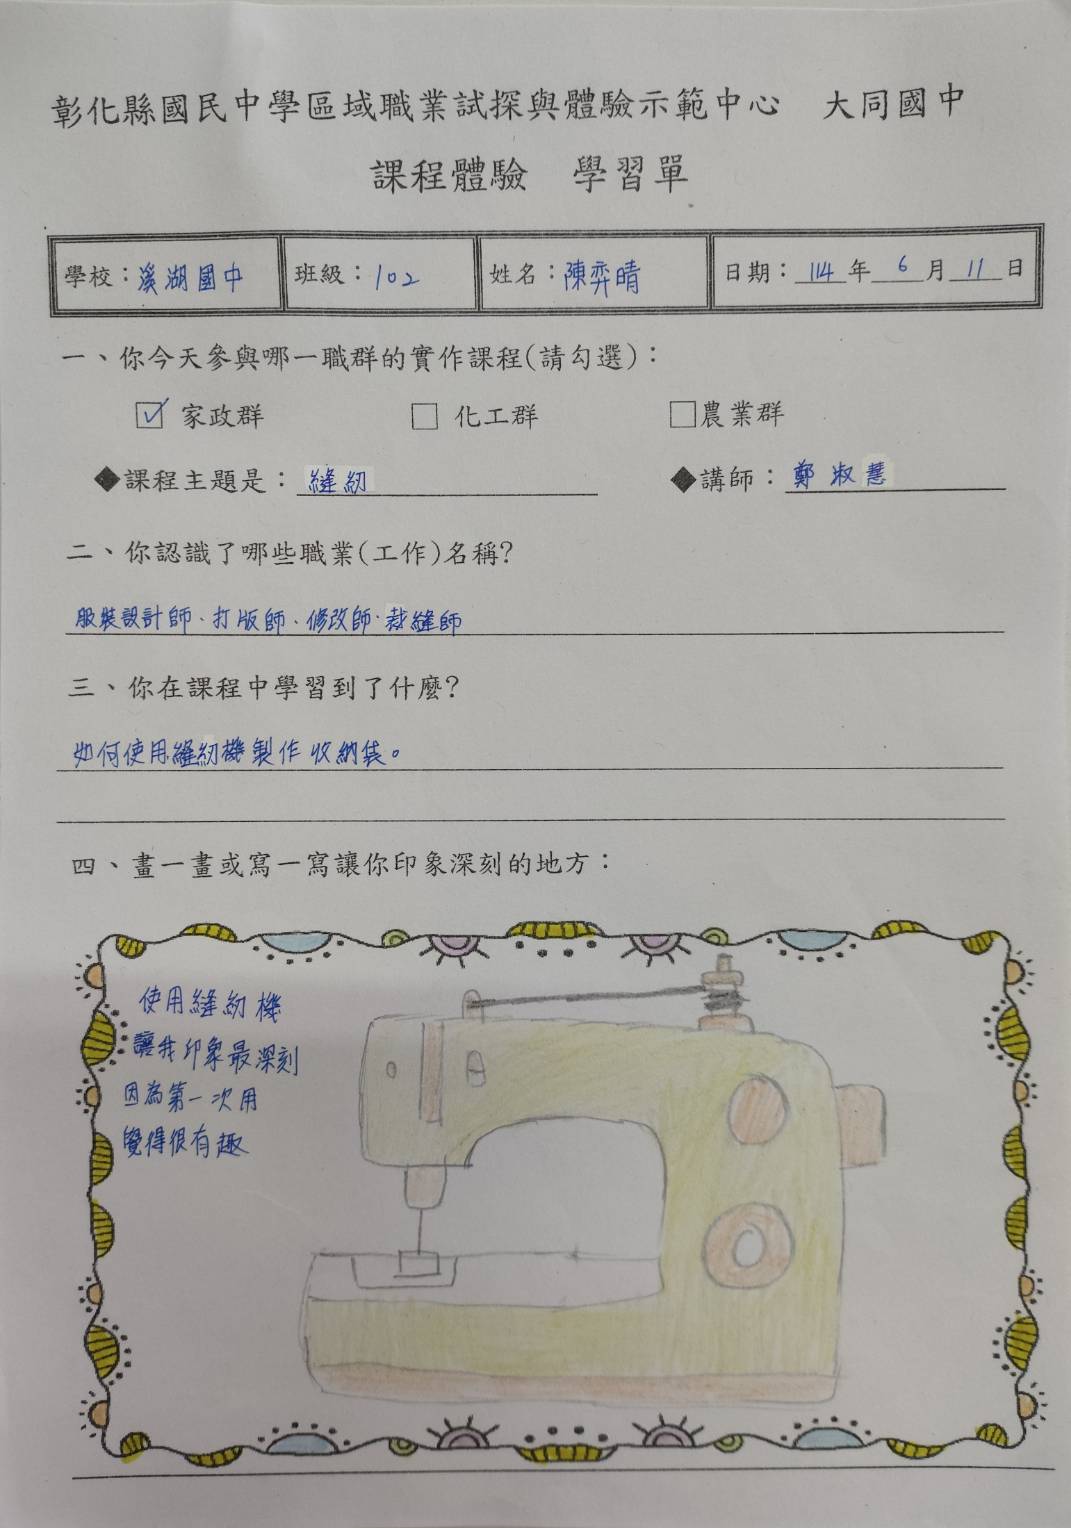 彰化縣國民中學區域職業試探與體驗示範中心 大同國中
課程體驗 學習單
學校：溪湖國中 班級：102 姓名：陳弈晴 日期：114年6月11日
一、你今天參與哪一職群的實作課程(請勾選)：
☑ 家政群 □ 化工群 □農業群
◆課程主題是：縫紉 ◆講師：鄭淑慧
二、你認識了哪些職業(工作)名稱?
服裝設計師、打版師、修改師、裁縫師
三、你在課程中學習到了什麼?
如何使用縫紉機製作收納袋。
四、畫一畫或寫一寫讓你印象深刻的地方：
使用縫紉機
讓我印象最深刻
因為第一次用
覺得很有趣